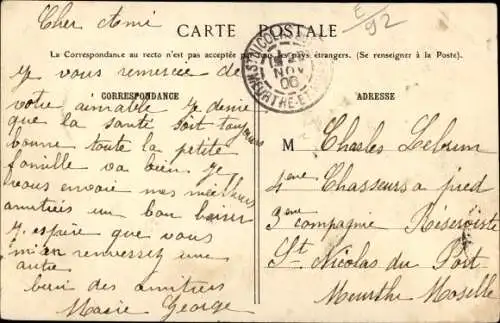 Cher Ami
E/92
CARTE POSTALE
La Correspondance au recto n'est pas acceptée par tous les pays étrangers. (Se renseigner à la Poste).
CORRESPONDANCE
ADRESSE
ST NICOLAS
NOV
06
MEURTHE-ET-
Je vous remercie de
votre aimable Je desire
que la santé soit toujours
bonne toute la petite
famille va bien. Je
vous envoie mes meilleurs
amitiées un bon baiser
J. espère que vous
m'en renverrez une
autre
bien des amitiers
Marie George
M Charles Lebrun
4eme Chasseurs a pied
3eme compagnie Réserviste
St Nicolas du Port
Meurthe Moselle